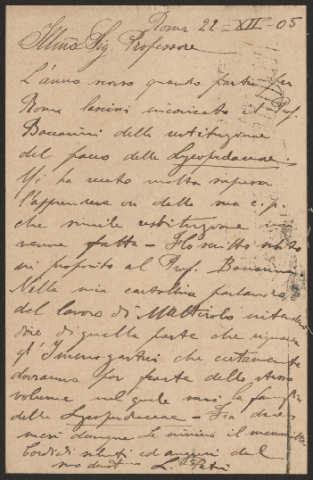 Roma 22-XII-05
Illmo Sig Professore
L'anno scorso quando partii per
Roma lasciai incaricato il Prof.
Baccarini della restituzione
del pacco delle Lycoperdaceae.
Mi ha recato molta sorpresa
l'apprendere ora dalla sua c. p.
che simile restituzione non
venne fatta - Ho scritto subito
in proposito al Prof. Baccarini.
Nella mia cartolina parlando
del lavoro di Mattirolo intendevo
dire di quella parte che riguarda
gl'Imenogastrei che certamente
dovranno far parte dello stesso
volume nel quale sarà la famiglia
delle Lycoperdaceae - Fra dieci
mesi dunque le invierò il manoscritto
Cordiali saluti ed auguri dal
suo devmo L. Petri